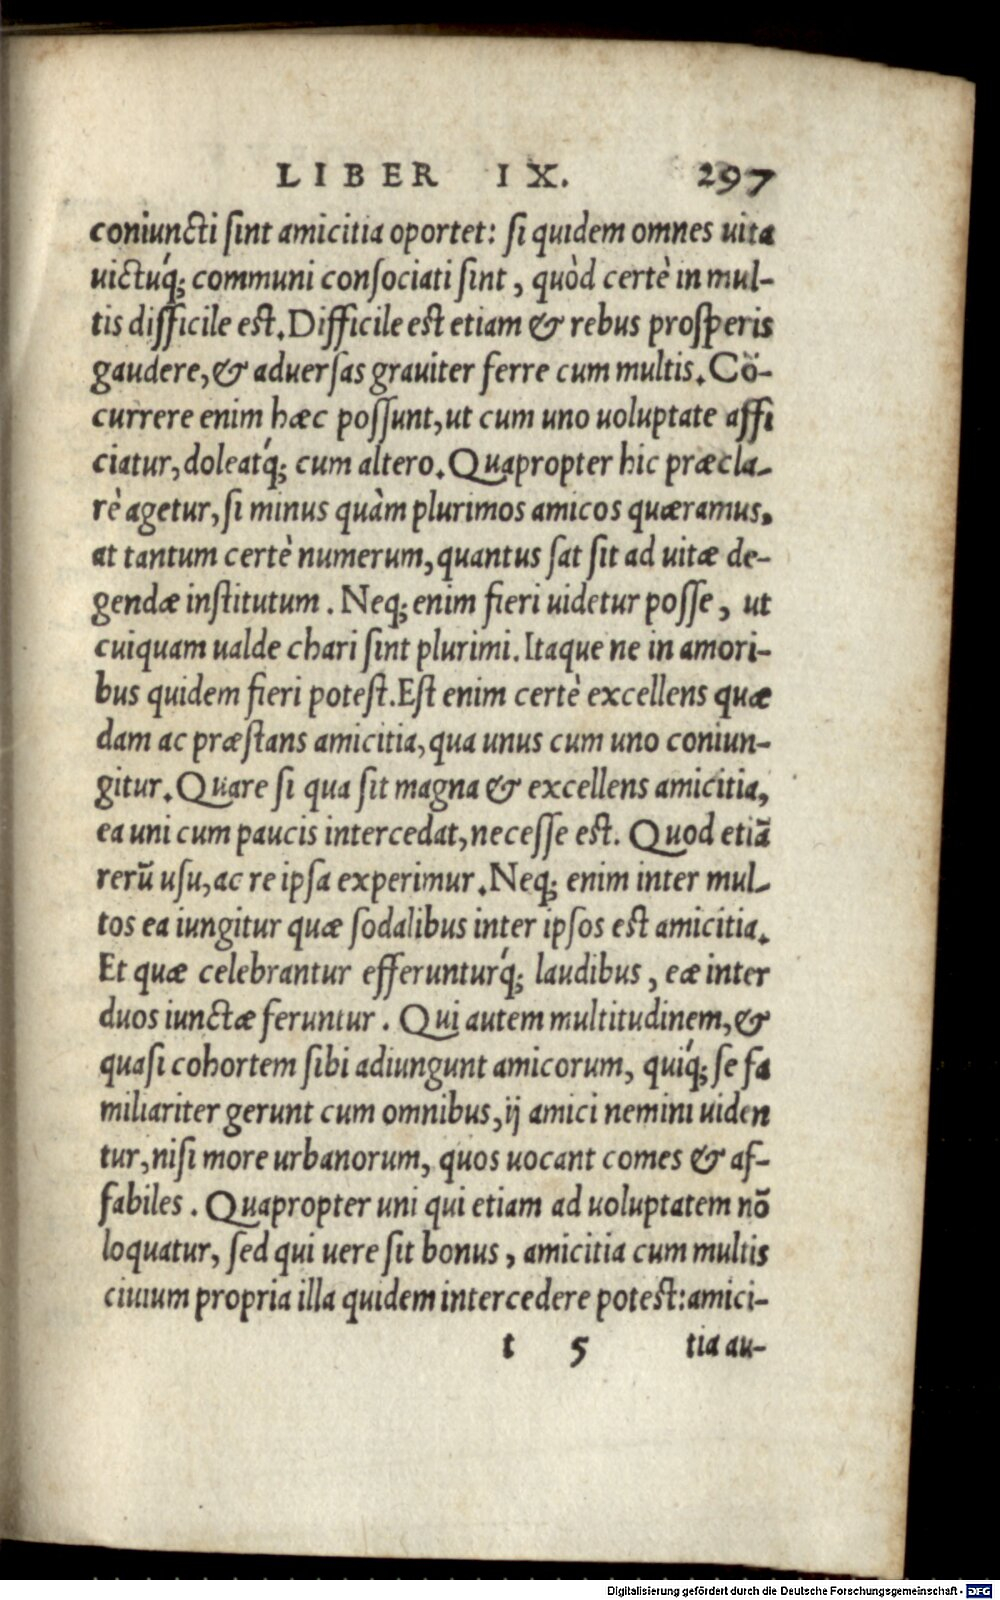 LIBER IX. 297
coniuncti ſint amicitia oportet: ſi quidem omnes uita
uictúq; communi conſociati ſint, quòd certè in mul-
tis difficile est. Difficile est etiam & rebus proſperis
gaudere, & aduerſas grauiter ferre cum multis. Cō-
currere enim hæc poſſunt, ut cum uno uoluptate affi
ciatur, doleatq́; cum altero. Quapropter hic præcla-
rè agetur, ſi minus quàm plurimos amicos quæramus,
at tantum certè numerum, quantus ſat ſit ad uitæ de-
gendæ inſtitutum. Neq; enim fieri uidetur poſſe, ut
cuiquam ualde chari ſint plurimi. Itaque ne in amori-
bus quidem fieri poteſt. Eſt enim certè excellens quæ
dam ac præſtans amicitia, qua unus cum uno coniun-
gitur. Quare ſi qua ſit magna & excellens amicitia,
ea uni cum paucis intercedat, neceſſe est. Quod etiā
rerū uſu, ac re ipſa experimur. Neq; enim inter mul-
tos ea iungitur quæ ſodalibus inter ipſos est amicitia.
Et quæ celebrantur efferunturq́; laudibus, eæ inter
duos iunctæ feruntur. Qui autem multitudinem, &
quaſi cohortem ſibi adiungunt amicorum, quiq́; ſe fa
miliariter gerunt cum omnibus, ij amici nemini uiden
tur, niſi more urbanorum, quos uocant comes & af-
fabiles. Quapropter uni qui etiam ad uoluptatem nō
loquatur, ſed qui uere ſit bonus, amicitia cum multis
ciuium propria illa quidem intercedere potest: amici-
t 5 tia au-
Digitalisierung gefördert durch die Deutsche Forschungsgemeinschaft - DFG